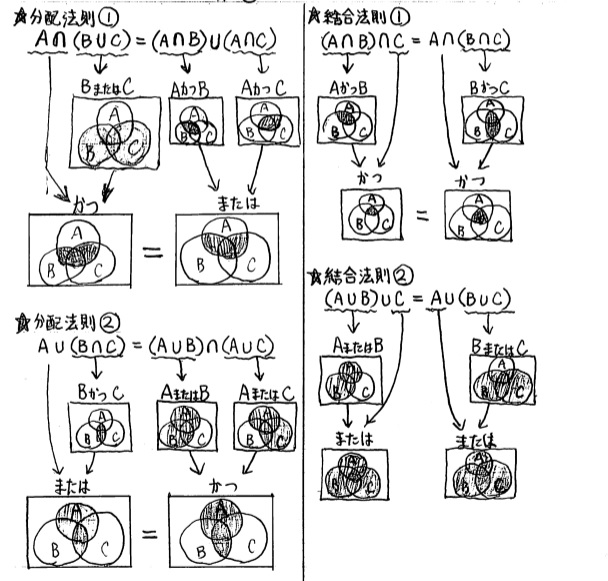 ☆分配法則①
A∩(B∪C)=(A∩B)∪(A∩C)
BまたはC
AかつB
AかつC
A
B
C
A
B
C
A
B
C
かつ
または
A
B
C
=
A
B
C
☆分配法則②
A∪(B∩C)=(A∪B)∩(A∪C)
BかつC
AまたはB
AまたはC
A
B
C
A
B
C
A
B
C
または
かつ
A
B
C
=
A
B
C
☆結合法則①
(A∩B)∩C=A∩(B∩C)
AかつB
BかつC
A
B
C
A
B
C
かつ
かつ
A
B
C
=
A
B
C
☆結合法則②
(A∪B)∪C=A∪(B∪C)
AまたはB
BまたはC
A
B
C
A
B
C
または
または
A
B
C
A
B
C